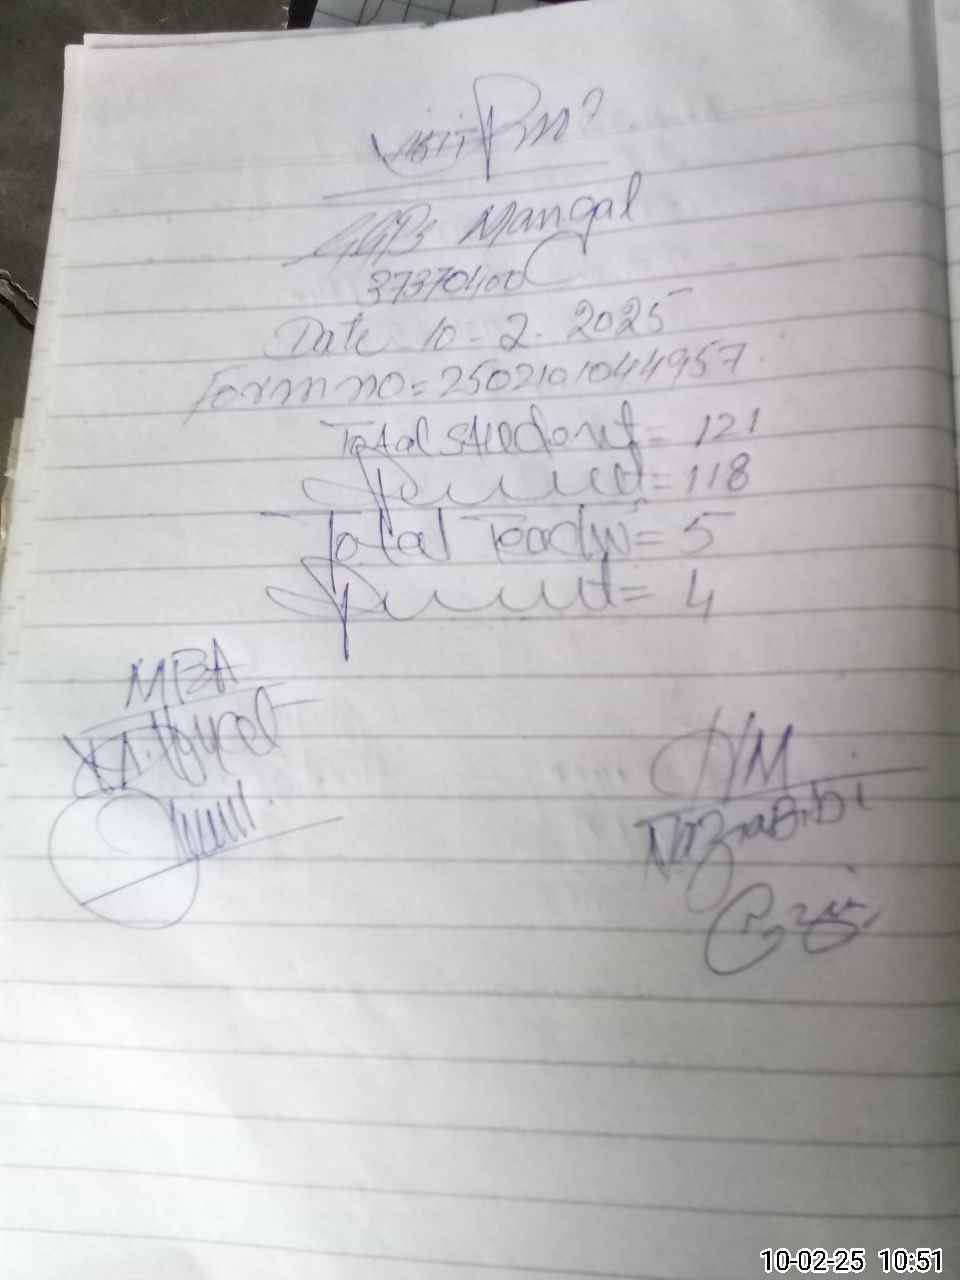 Visit
GGPS Mangal
37370400
Date 10-2-2025
Form no=2502101044957
Total student=121
Present=118
Total Teacher=5
Present=4
MBA
HM
Nazia Bibi
10-02-25 10:51